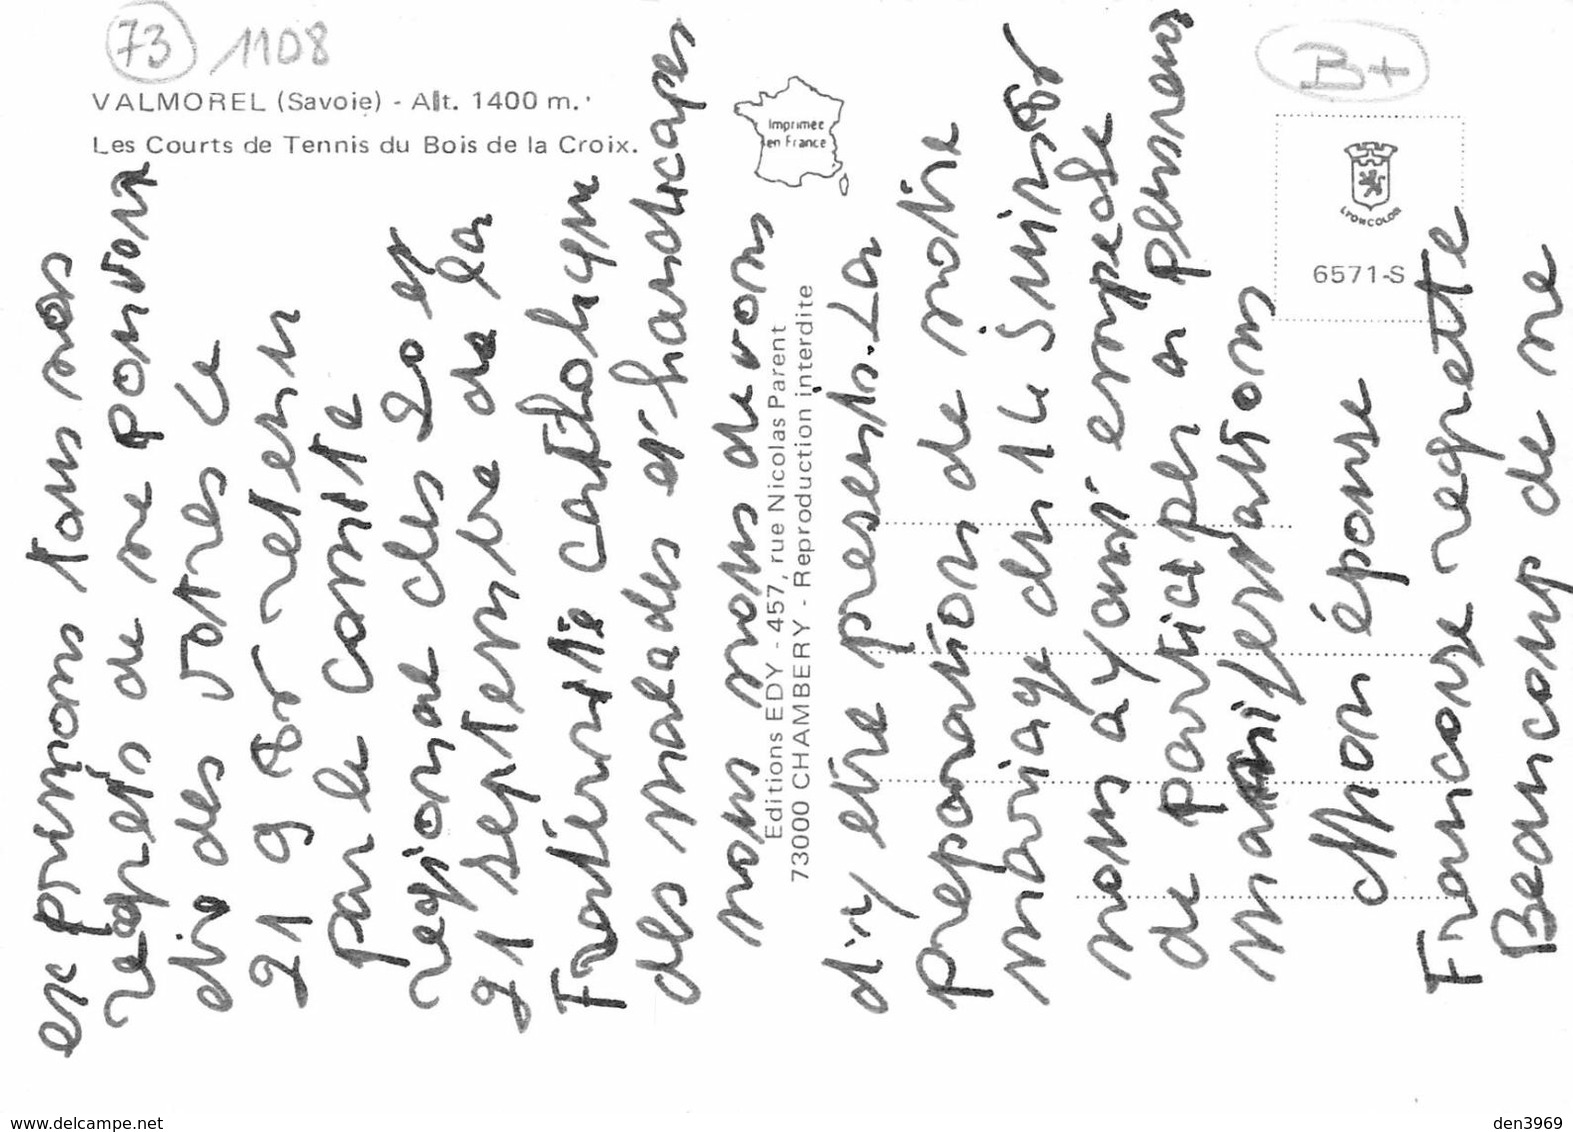 73 1108
B+
VALMOREL (Savoie) - Alt. 1400 m.
Les Courts de Tennis du Bois de la Croix.
Imprimée
en France
LYONCOLOR
6571-S
Editions EDY - 457, rue Nicolas Parent
73000 CHAMBERY - Reproduction interdite
exprimons tous nos
regrets de ne pouvoir
des votres ce
21 9 retenu
par le comite
regional des 20 et
21 septembre de la
Fraternité catholique
des malades et handicapes
nous nous devons
d'y etre presents. La
preparation de notre
mariage du 14 Juin
nous ayant empeche
de participer a plusieurs
manifestations
Mon épouse
Francoise regrette
Beaucoup de ne
www.delcampe.net
den3969